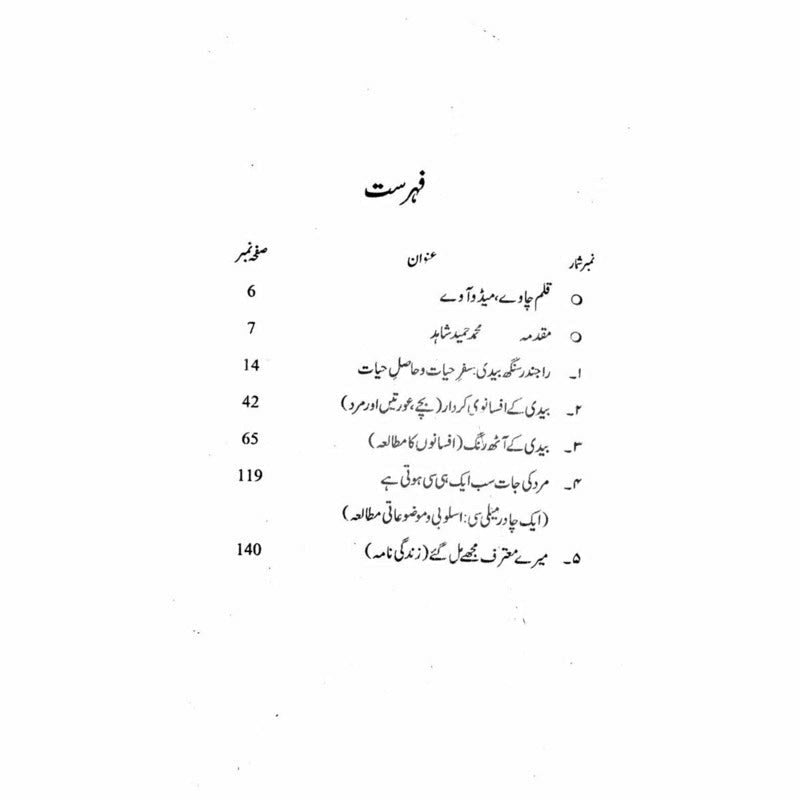 فہرست
نمبر شمار عنوان صفحہ نمبر
○ قلم چاوے، میڈو آوے 6
○ مقدمہ محمد حمید شاہد 7
۱۔ راجندر سنگھ بیدی: سفرِ حیات و حاصلِ حیات 14
۲۔ بیدی کے افسانوی کردار (بچے، عورتیں اور مرد) 42
۳۔ بیدی کے آٹھ رنگ (افسانوں کا مطالعہ) 65
۴۔ مرد کی جات سب ایک ہی سی ہوتی ہے 119
(ایک چادر میلی سی: اسلوبی و موضوعاتی مطالعہ)
۵۔ میرے معترف مجھے مل گئے (زندگی نامہ) 140